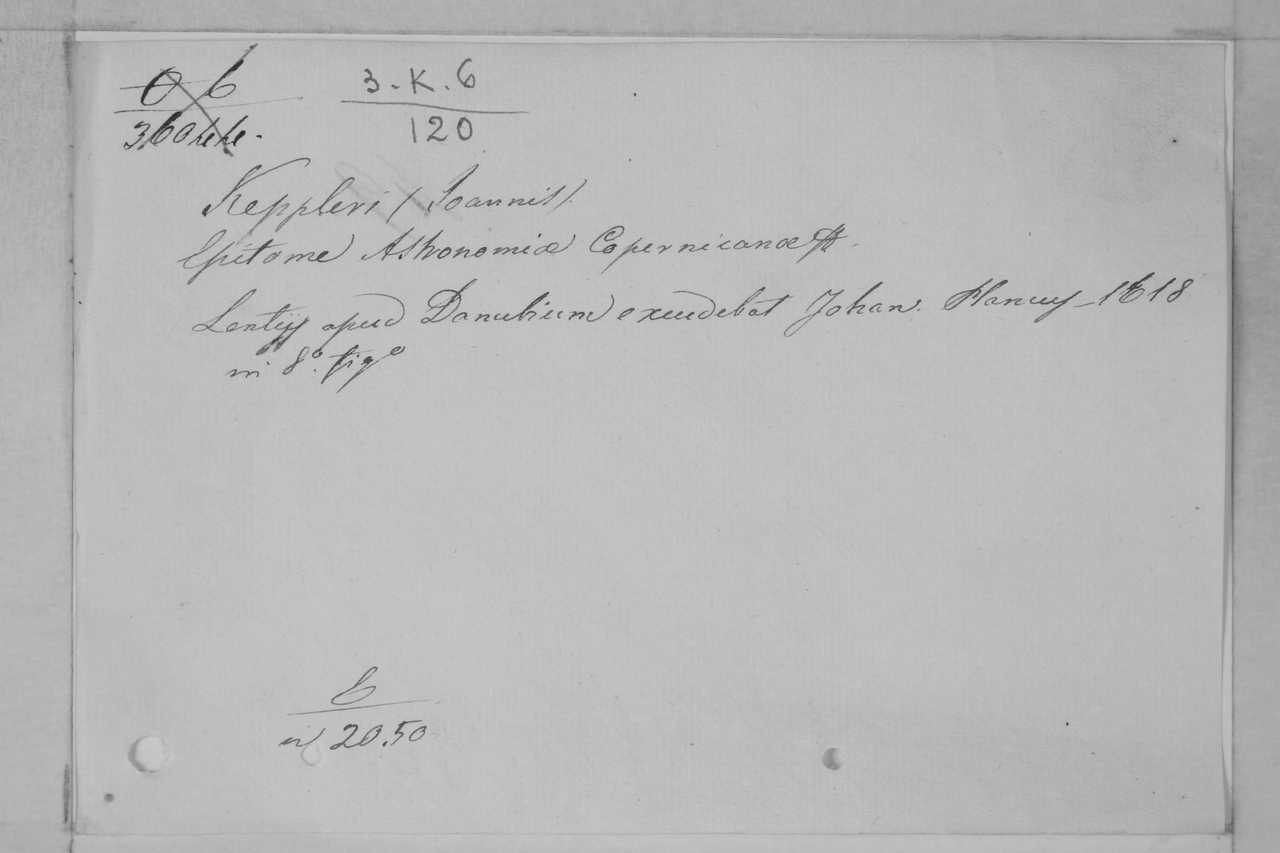 O 6
3. K. 6
120
Keppleri (Joannis).
Epitome Astronomiæ Copernicanæ
Lentijs apud Danubium excudebat Johan. Plancus 1618
in 8.º fig.º
6
20.50